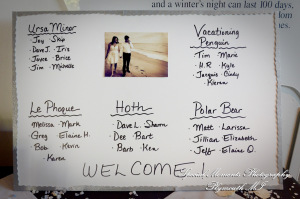 and a winter's night can last 100 days,
Ursa Minor
Joy Skip
Dave J. Iris
Joyce Brice
Jim Michele
Vacationing
Penguin
Tim Marie
H.R. Kyle
Jacquie Cindy
Kieran
Le Phoque
Melissa Mark
Greg Elaine H.
Bob Kevin
Karen
Hoth
Dave L. Sharon
Dee Bart
Barb Ken
Polar Bear
Matt Larissa
Jillian Elizabeth
Jeff Elaine O.
WELCOME!
Moments Photography
Plymouth MI